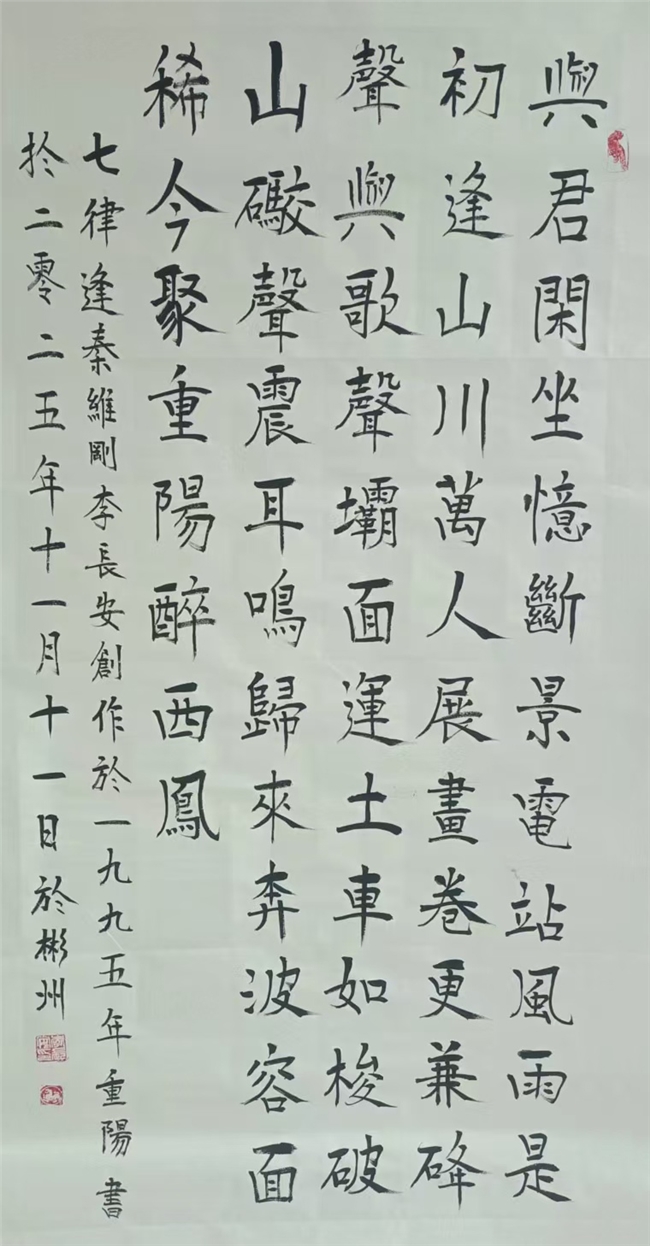 與君閑坐憶斷景電站風雨是
初逢山川萬人展畫卷更兼
聲與歌聲壩面運土車如梭破
山礮聲震耳鳴歸來奔波容面
稀今聚重陽醉西鳳
七律逢秦維剛李長安創作於一九九五年重陽書
扵二零二五年十一月十一日於彬州